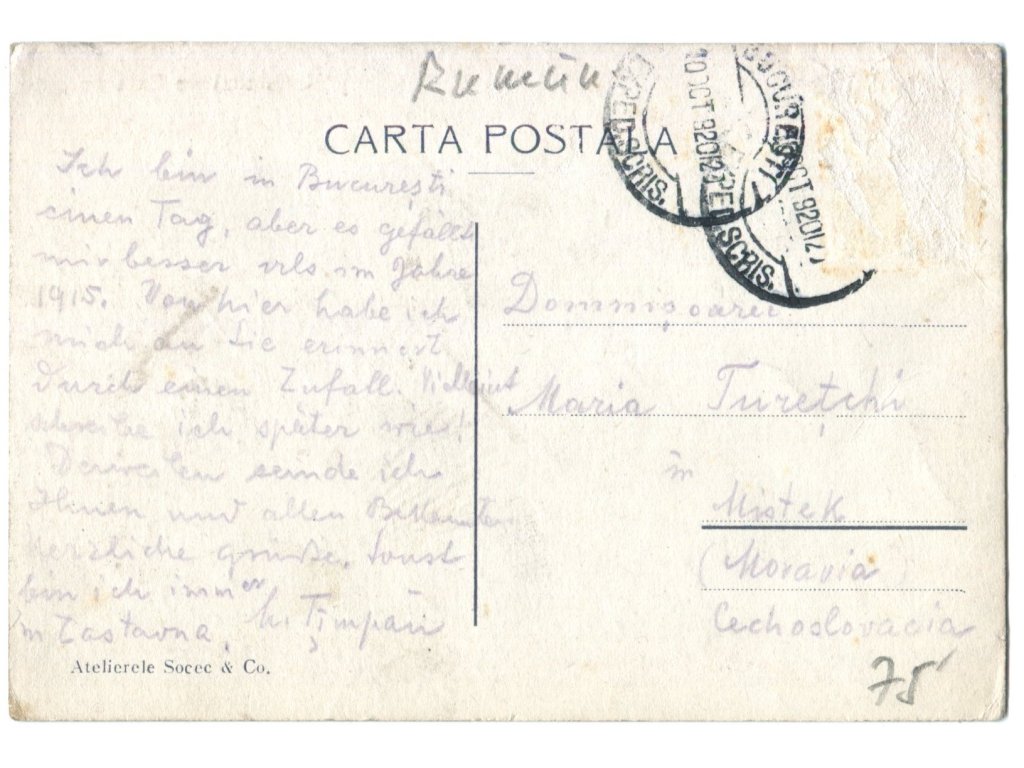 Rumün
CARTA POSTALA
EXPED. SCRIS.
10 OCT 920 12
BUCUREȘTI
OCT 920 12
EXPED SCRIS.
Ich bin in București
einen Tag, aber es gefällt
mir besser als im Jahre
1915. Von hier habe ich
mich an Sie erinnert
durch einen Zufall. Vielleicht
schreibe ich später wie!
Derweilen sende ich
Ihnen und allen Bekannten
herzliche grüße. Sonst
bin ich immer
in Zastavna. N. Țimpău
Domnișoarei
Maria Turețchi
in
Mistek
(Moravia)
Cechoslovacia
Atelierele Socec & Co.
75